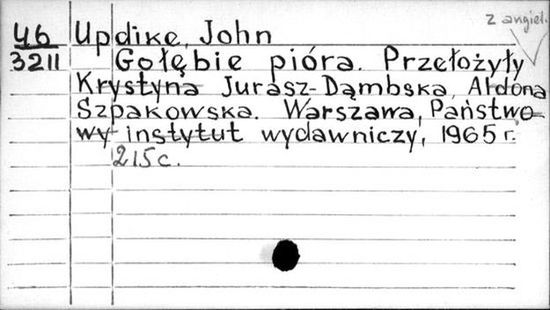 z angiel.
46 Updike, John
3211 Gołębie pióra. Przełożyły
Krystyna Jurasz-Dąmbska, Ałdona
Szpakowska. Warszawa, Państwo-
wy instytut wydawniczy, 1965 r.
215 c.